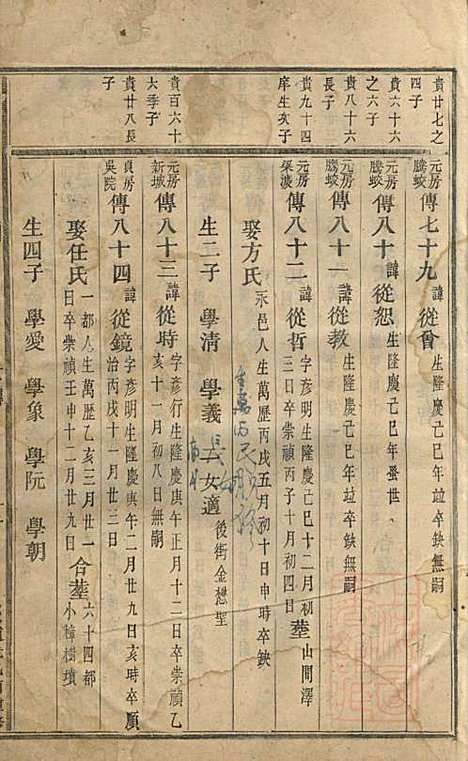 貴廿七之四子
元房騰蛟 傳七十九 諱從會 生隆慶己巳年竝卒缺無嗣
貴六十六之六子
元房騰蛟 傳八十 諱從恕 生隆慶己巳年蚤世
貴八十六長子
元房騰蛟 傳八十一 諱從教 生隆慶己巳年竝卒缺無嗣
貴九十四庠生亥子
元房渠渡 傳八十二 諱從哲 字彥明生隆慶己巳十二月初三日卒崇禎丙子十月初四日 塟山間澤
娶方氏 永邑人生萬歷丙戌五月初十日申時卒缺
生二子 學清 學義 一女適後街金懋聖
貴百六十大季子
元房新城 傳八十三 諱從時 字彥行生隆慶庚午正月十二日卒崇禎乙亥十一月初八日無嗣
貴廿八長子
貞房吳院 傳八十四 諱從鏡 字彥明生隆慶庚午二月廿九日亥時卒順治丙戌十一月廿三日
娶任氏 一都人生萬歷乙亥三月廿一日卒崇禎壬申十二月廿九日 合塟六十四都小樟樹墳
生四子 學愛 學象 學阮 學朝